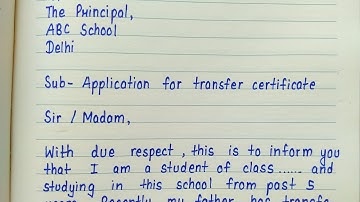 The Principal,
ABC School
Delhi
Sub- Application for transfer certificate
Sir / Madam,
With due respect, this is to inform you
that I am a student of class ...... and
studying in this school from past 5
years. Recently my father has transfe